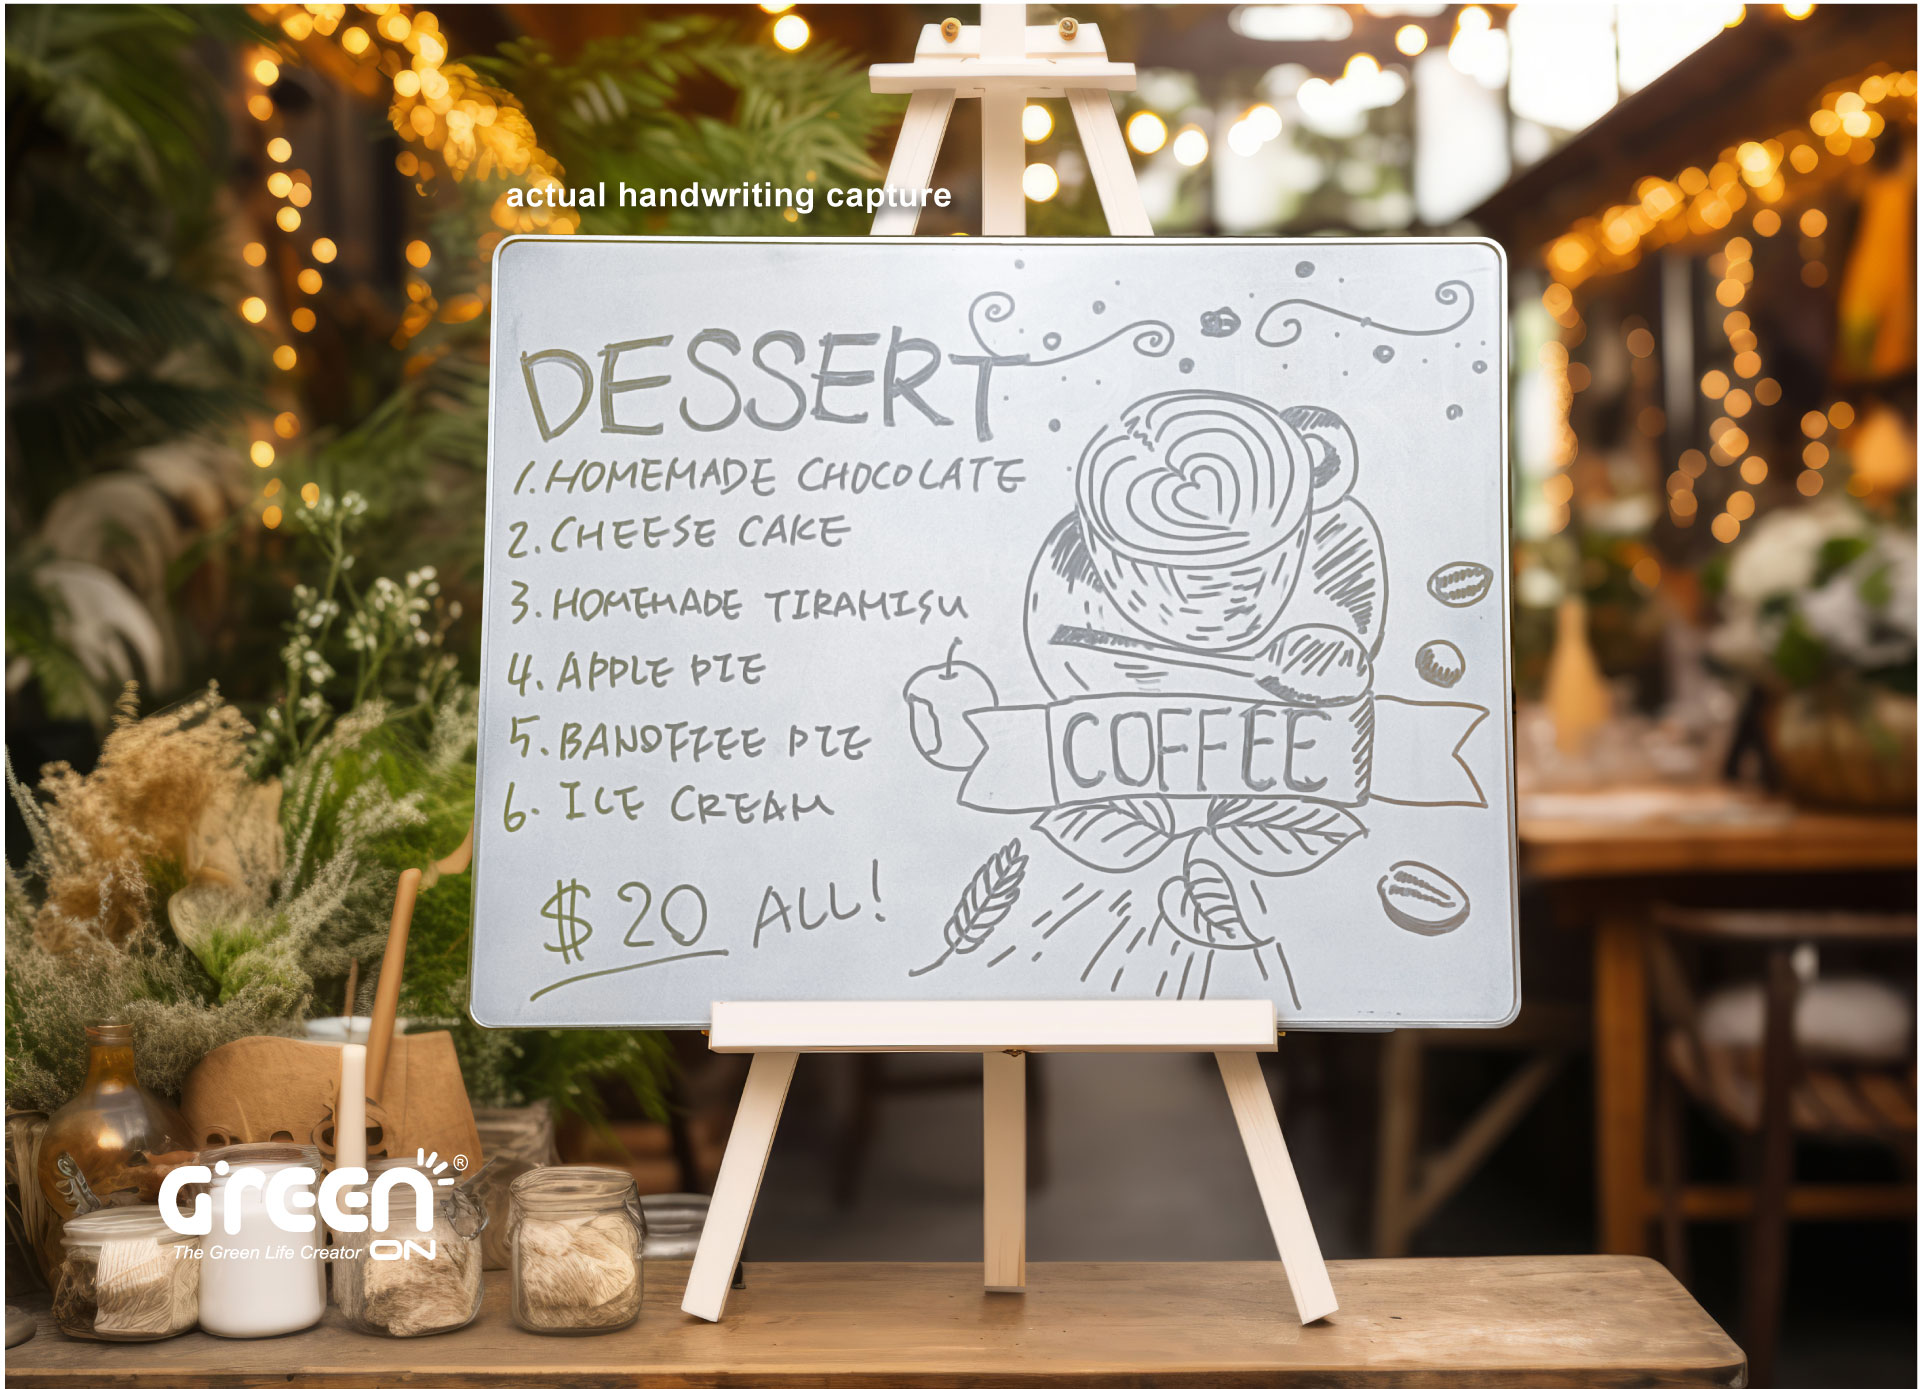 actual handwriting capture
DESSERT
1. HOMEMADE CHOCOLATE
2. CHEESE CAKE
3. HOMEMADE TIRAMISU
4. APPLE PIE
5. BANOFFEE PIE
6. ICE CREAM
$20 ALL!
COFFEE
GREEN ®
The Green Life Creator ON